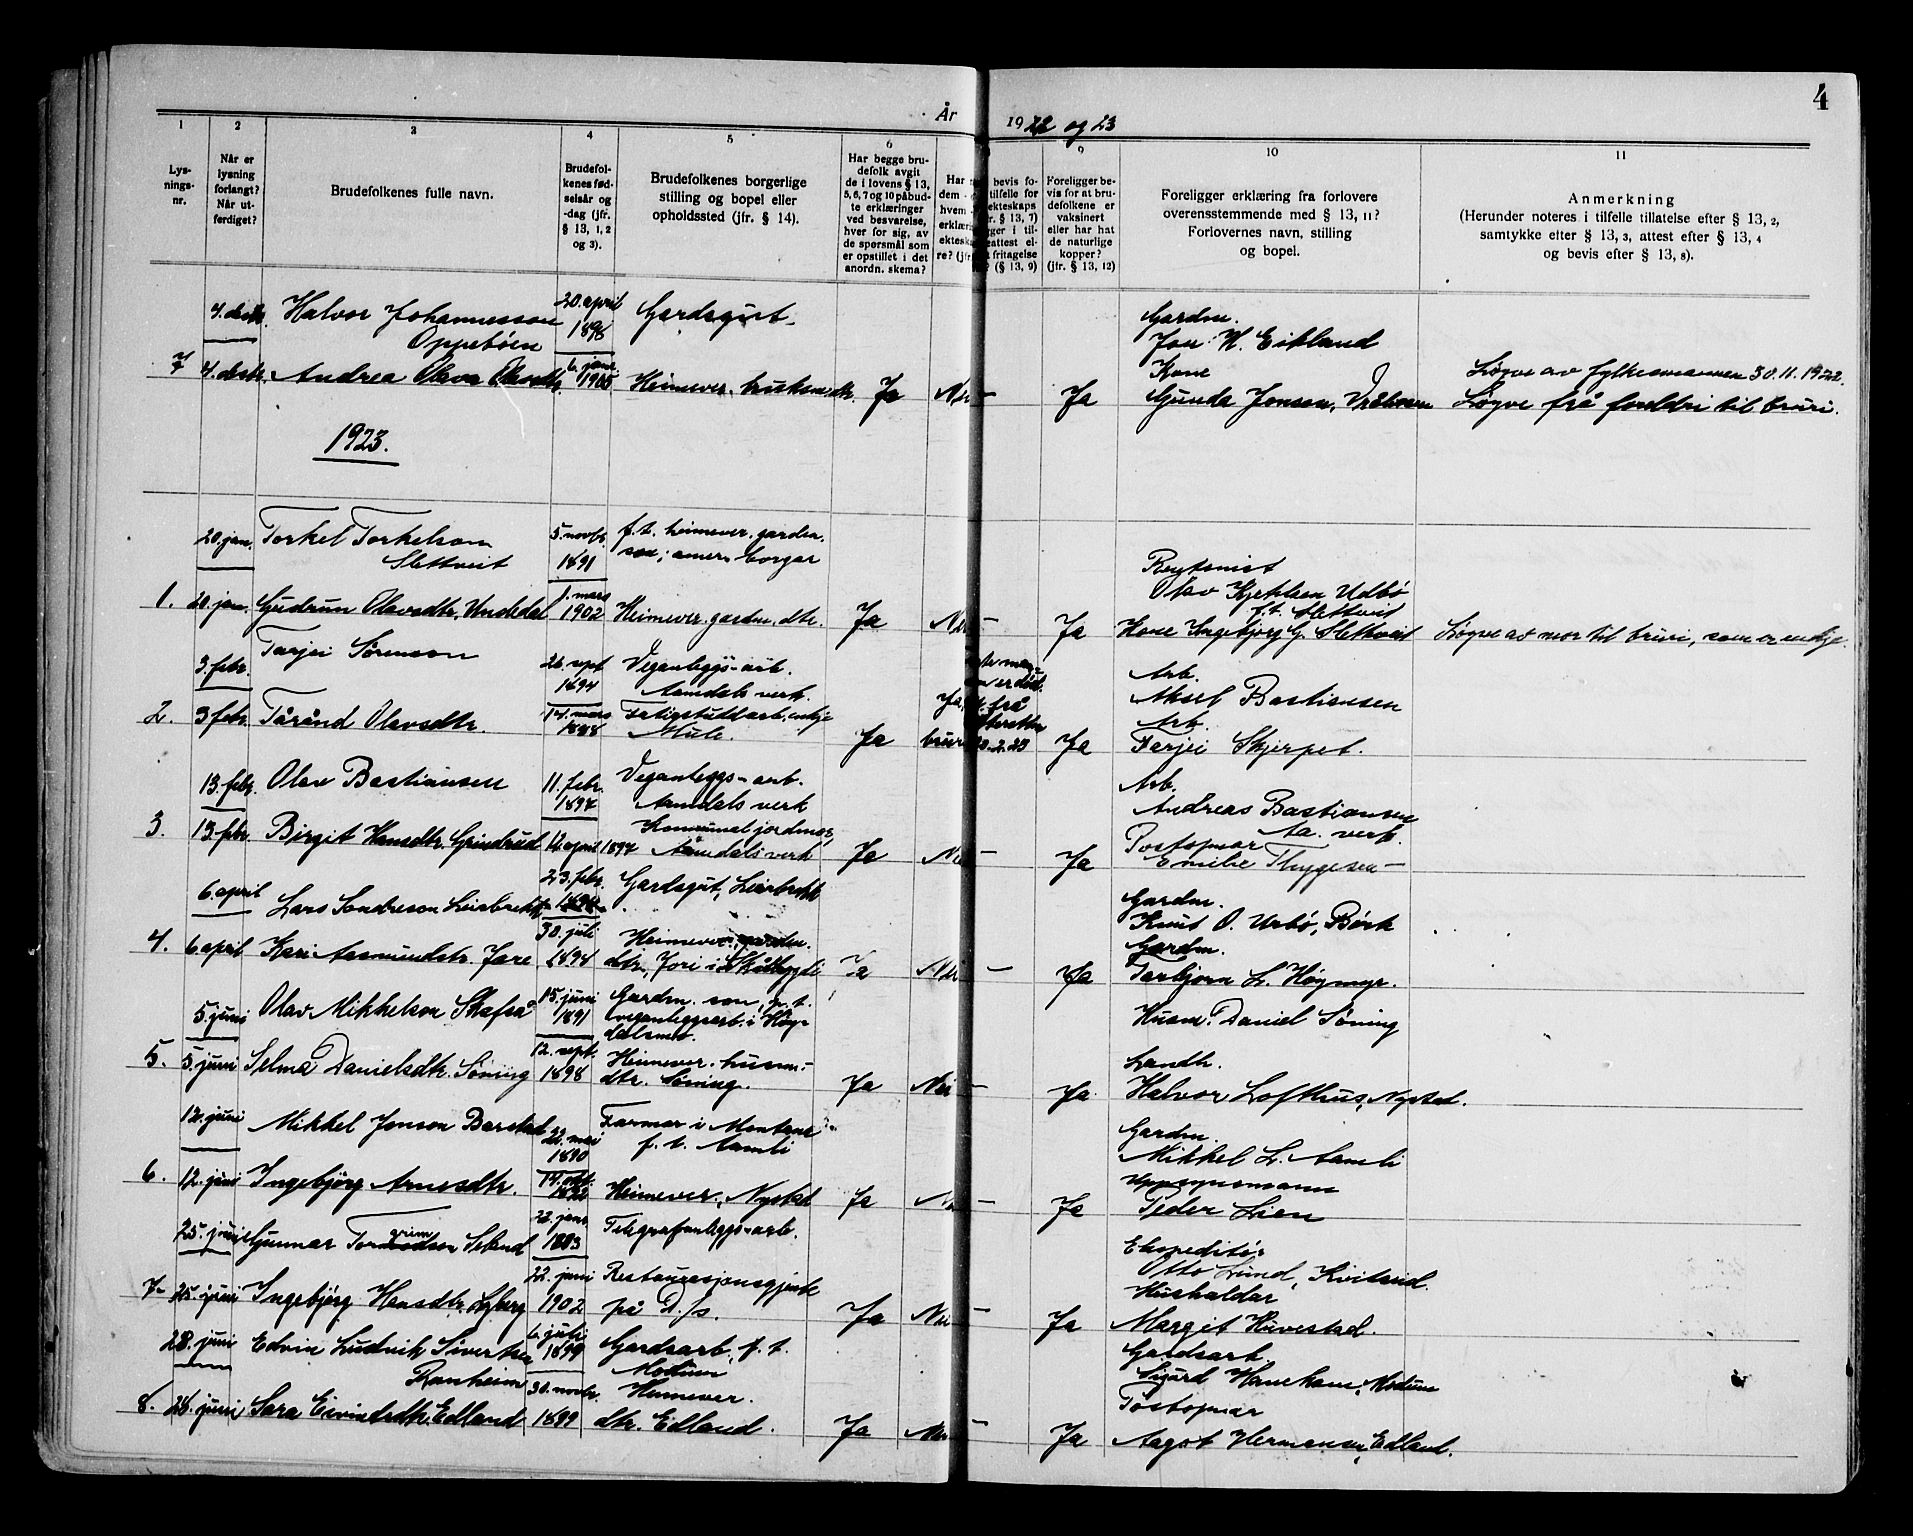 4
År 1922 og 23
1
2
3
4
5
6
9
10
11
Lys-
nings-
nr.
Når er
lysning
forlangt?
Når ut-
ferdiget?
Brudefolkenes fulle navn.
Brudefol-
kenes fød-
selsår og
-dag (jfr.
§ 13, 1, 2
og 3).
Brudefolkenes borgerlige
stilling og bopel eller
opholdssted (jfr. § 14).
Har begge bru-
defolk avgit
de i lovens § 13,
5, 6, 7 og 10 påbud-
te erklæringer
ved besvarelse,
hver for sig, av
de spørsmål som
er opstillet i det
anordn. skema?
Har
dem
hvem
erklær
ektesk
re? (jfr
bevis fo-
tilfelle for
ekteskaps
r. § 13, 7)
gger i til-
eattest el-
fritagelse
? (§ 13, 9)
Foreligger be-
vis for at bru-
defolkene er
vaksinert
eller har hat
de naturlige
kopper?
(jfr. § 13, 12)
Foreligger erklæring fra forlovere
overensstemmende med § 13, 11?
Forlovernes navn, stilling
og bopel.
Anmerkning
(Herunder noteres i tilfelle tillatelse efter § 13, 2,
samtykke efter § 13, 3, attest efter § 13, 4
og bevis efter § 13, 8).
4. desbr. Halvor Johannesson 20. april Gardsgut
Oppebøen 1898
Gardm.
Jon H. Eikland
7 4. desbr. Andrea Olava Olavsdtr. 6. jan. 1905 Heimever. husmn. dtr. Ja Nei — Ja
Kone
Gunda Jonsen, Vråliosen
Løgve av fylkesmannen 30.11.1922.
Løgve frå foreldri til bruri.
1923.
20. jan. Torkel Torkelson 5. novbr. f.t. heimever. gardm.
Slettveit 1891 son; amer. borgar
Olav Kjetilsen Udbø
f.t. Slettveit
1. 20. jan. Gudrun Olavsdtr. Undedal 1. mars 1902 Heimever. gardm. dtr. Ja Nei — Ja
Kone Ingebjørg G. Slettveit
Løgve av mor til bruri, som er enkje.
3. febr. Tarjei Sørenson 26. sept. 1894 Veganleggs-arb.
Aamdals verk.
Arb.
Aksel Bastiansen
2. 3. febr. Tårånd Olavsdtr. 14. mars enkje
Mule. Ja Ja, bruri Ja
Arb.
Tarjei Skjerpet.
13. febr. Olav Bastiansen 11. febr. 1897 Veganleggs-arb.
Aamdals verk
Arb.
Andreas Bastiansen
Aa. verk.
3. 13. febr. Birgit Hansdtr. Grindrud 12. april 1897 Kommunal jordmor,
Åmdals verk Ja Nei — Ja
Postopnar
Emilie Thygesen —
6. april Lars Sondreson Leirbrekk 23. febr. Gardsgut, Leirbrekk
Gardm.
Knut O. Urbø, Børk
4. 6. april Kari Aasmundsdtr. Jore 30. juli 1894 Heimever. gardm.
dtr., Jori i Skåbygdi Ja Nei — Ja
Gardm.
Tarbjørn L. Høgmyr.
5. juni Olav Mikkelson Skafså 15. juni 1891 Gardm. son, p.t.
veganleggsarb. i Høy-
dalsmo.
Husm. Daniel Søning
5. 5. juni Selma Danielsdtr. Søning 12. sept. 1898 Heimever. husm.-
dtr. Søning. Ja Nei — Ja
Landh.
Halvor Lofthus, Nystad.
12. juni Mikkel Jonson Barstad 22. mai 1890 Farmar i Montana
f.t. Aamli
Gardm.
Mikkel L. Aamli
6. 12. juni Ingebjørg Arnesdtr. 14. okt. Heimever., Nystad Ja Nei — Ja
Uppsynsmann
Peder Lien
25. juni Gunnar Torgrimson Seland 22. jan. 1883 Telegrafanleggs-arb.
Ekspeditør
Otto Lund, Kviteseid.
7. 25. juni Ingebjørg Hansdtr. Lyberg 22. juni 1902 Restaurasjonsgjente
på D/s. Ja Nei — Ja
Hushaldar
Margit Huvestad.
28. juni Edvin Ludvik Sivertsen 6. juli 1899 Gardsarb., f.t.
Ranheim Modum
Gardsarb.
Sigurd Hanekam, Modum
8. 28. juni Sara Eivindsdtr. Edland 30. novbr. 1899 Heimever.
dtr. Edland. Ja Nei — Ja
Postopnar
Aagot Hermansen, Edland.